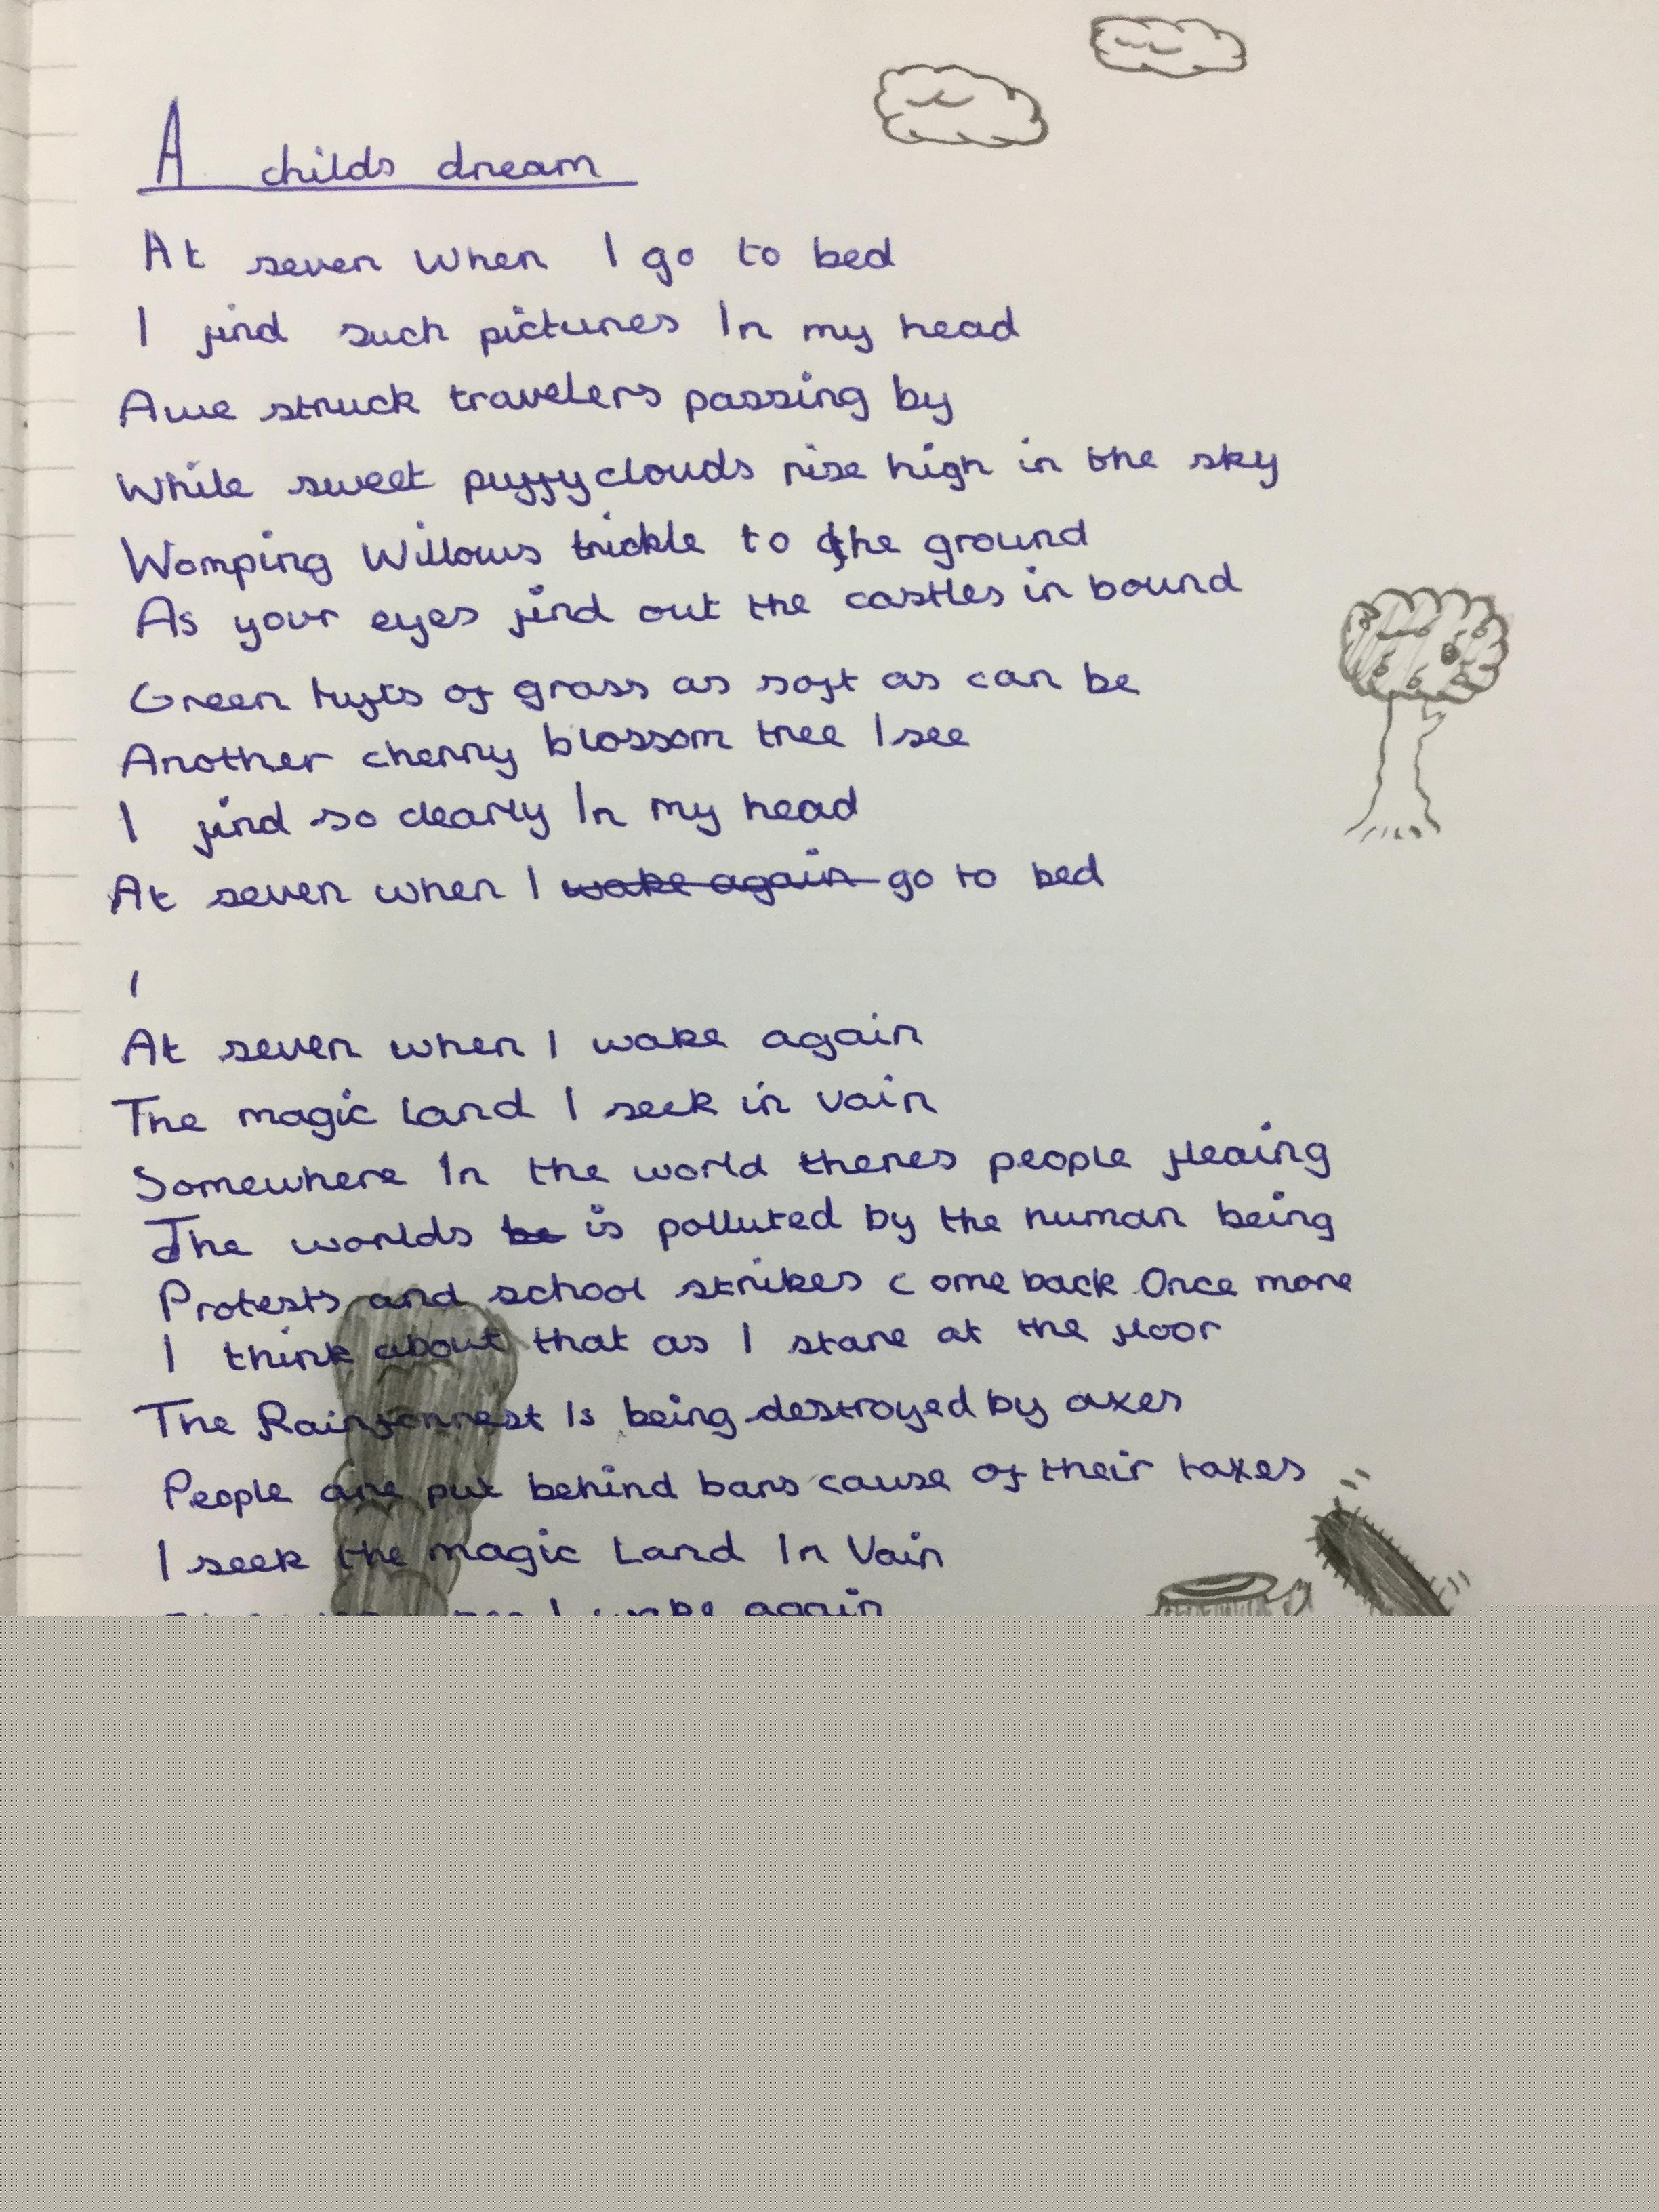 A childs dream
At seven when I go to bed
I find such pictures In my head
Awe struck travelers passing by
While sweet puffy clouds rise high in the sky
Womping Willows trickle to the ground
As your eyes find out the castles in bound
Green tufts of grass as soft as can be
Another cherry blossom tree I see
I find so clearly In my head
At seven when I wake again go to bed
I
At seven when I wake again
The magic land I seek in vain
Somewhere In the world theres people fleaing
The worlds be is polluted by the human being
Protests and school strikes come back Once more
I think about that as I stare at the floor
The Rainforrest Is being destroyed by axes
People are put behind bars cause of their taxes
I seek the magic Land In Vain
I wake again